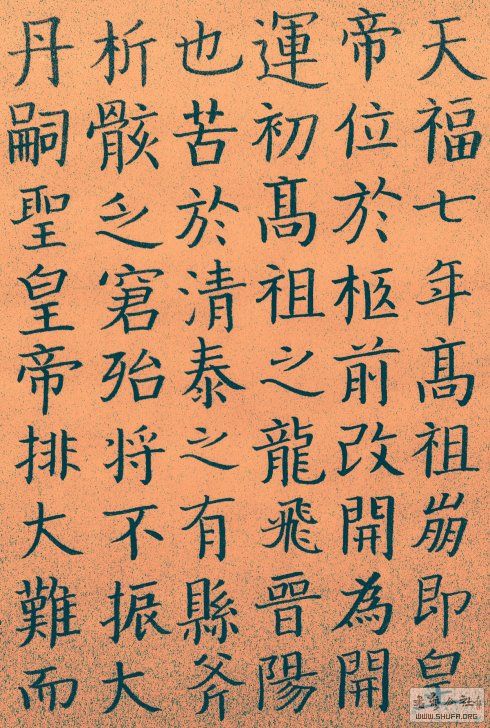 天福七年髙祖崩即皇
帝位於柩前改開為開
運初髙祖之龍飛晉陽
也苦於清泰之有縣斧
析骸之窘殆将不振大
丹嗣聖皇帝排大難而
WWW.SHUFA.ORG